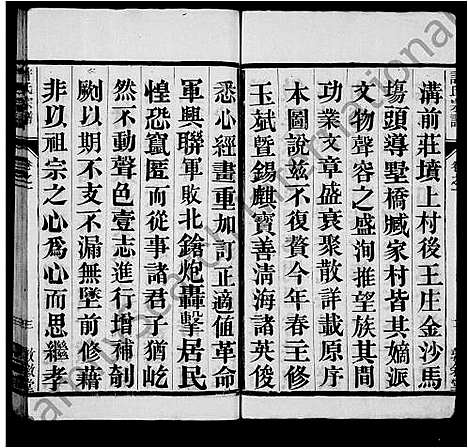 溝前莊墳上村後王庄金沙馬
塲頭導墅橋臧家村皆其嫡派
文物聲容之盛洵推望族其間
功業文章盛衰聚散詳載原序
本圖說茲不復贅今年春主修
玉斌暨錫麒寶善清海諸英俊
悉心經畫重加訂正適値革命
軍興聯軍敗北鎗炮轟擊居民
惶恐竄匿而從事諸君子猶屹
然不動聲色壹志進行增補剞
劂以期不漏無墜前修藉
非以祖宗之心爲心而思繼孝